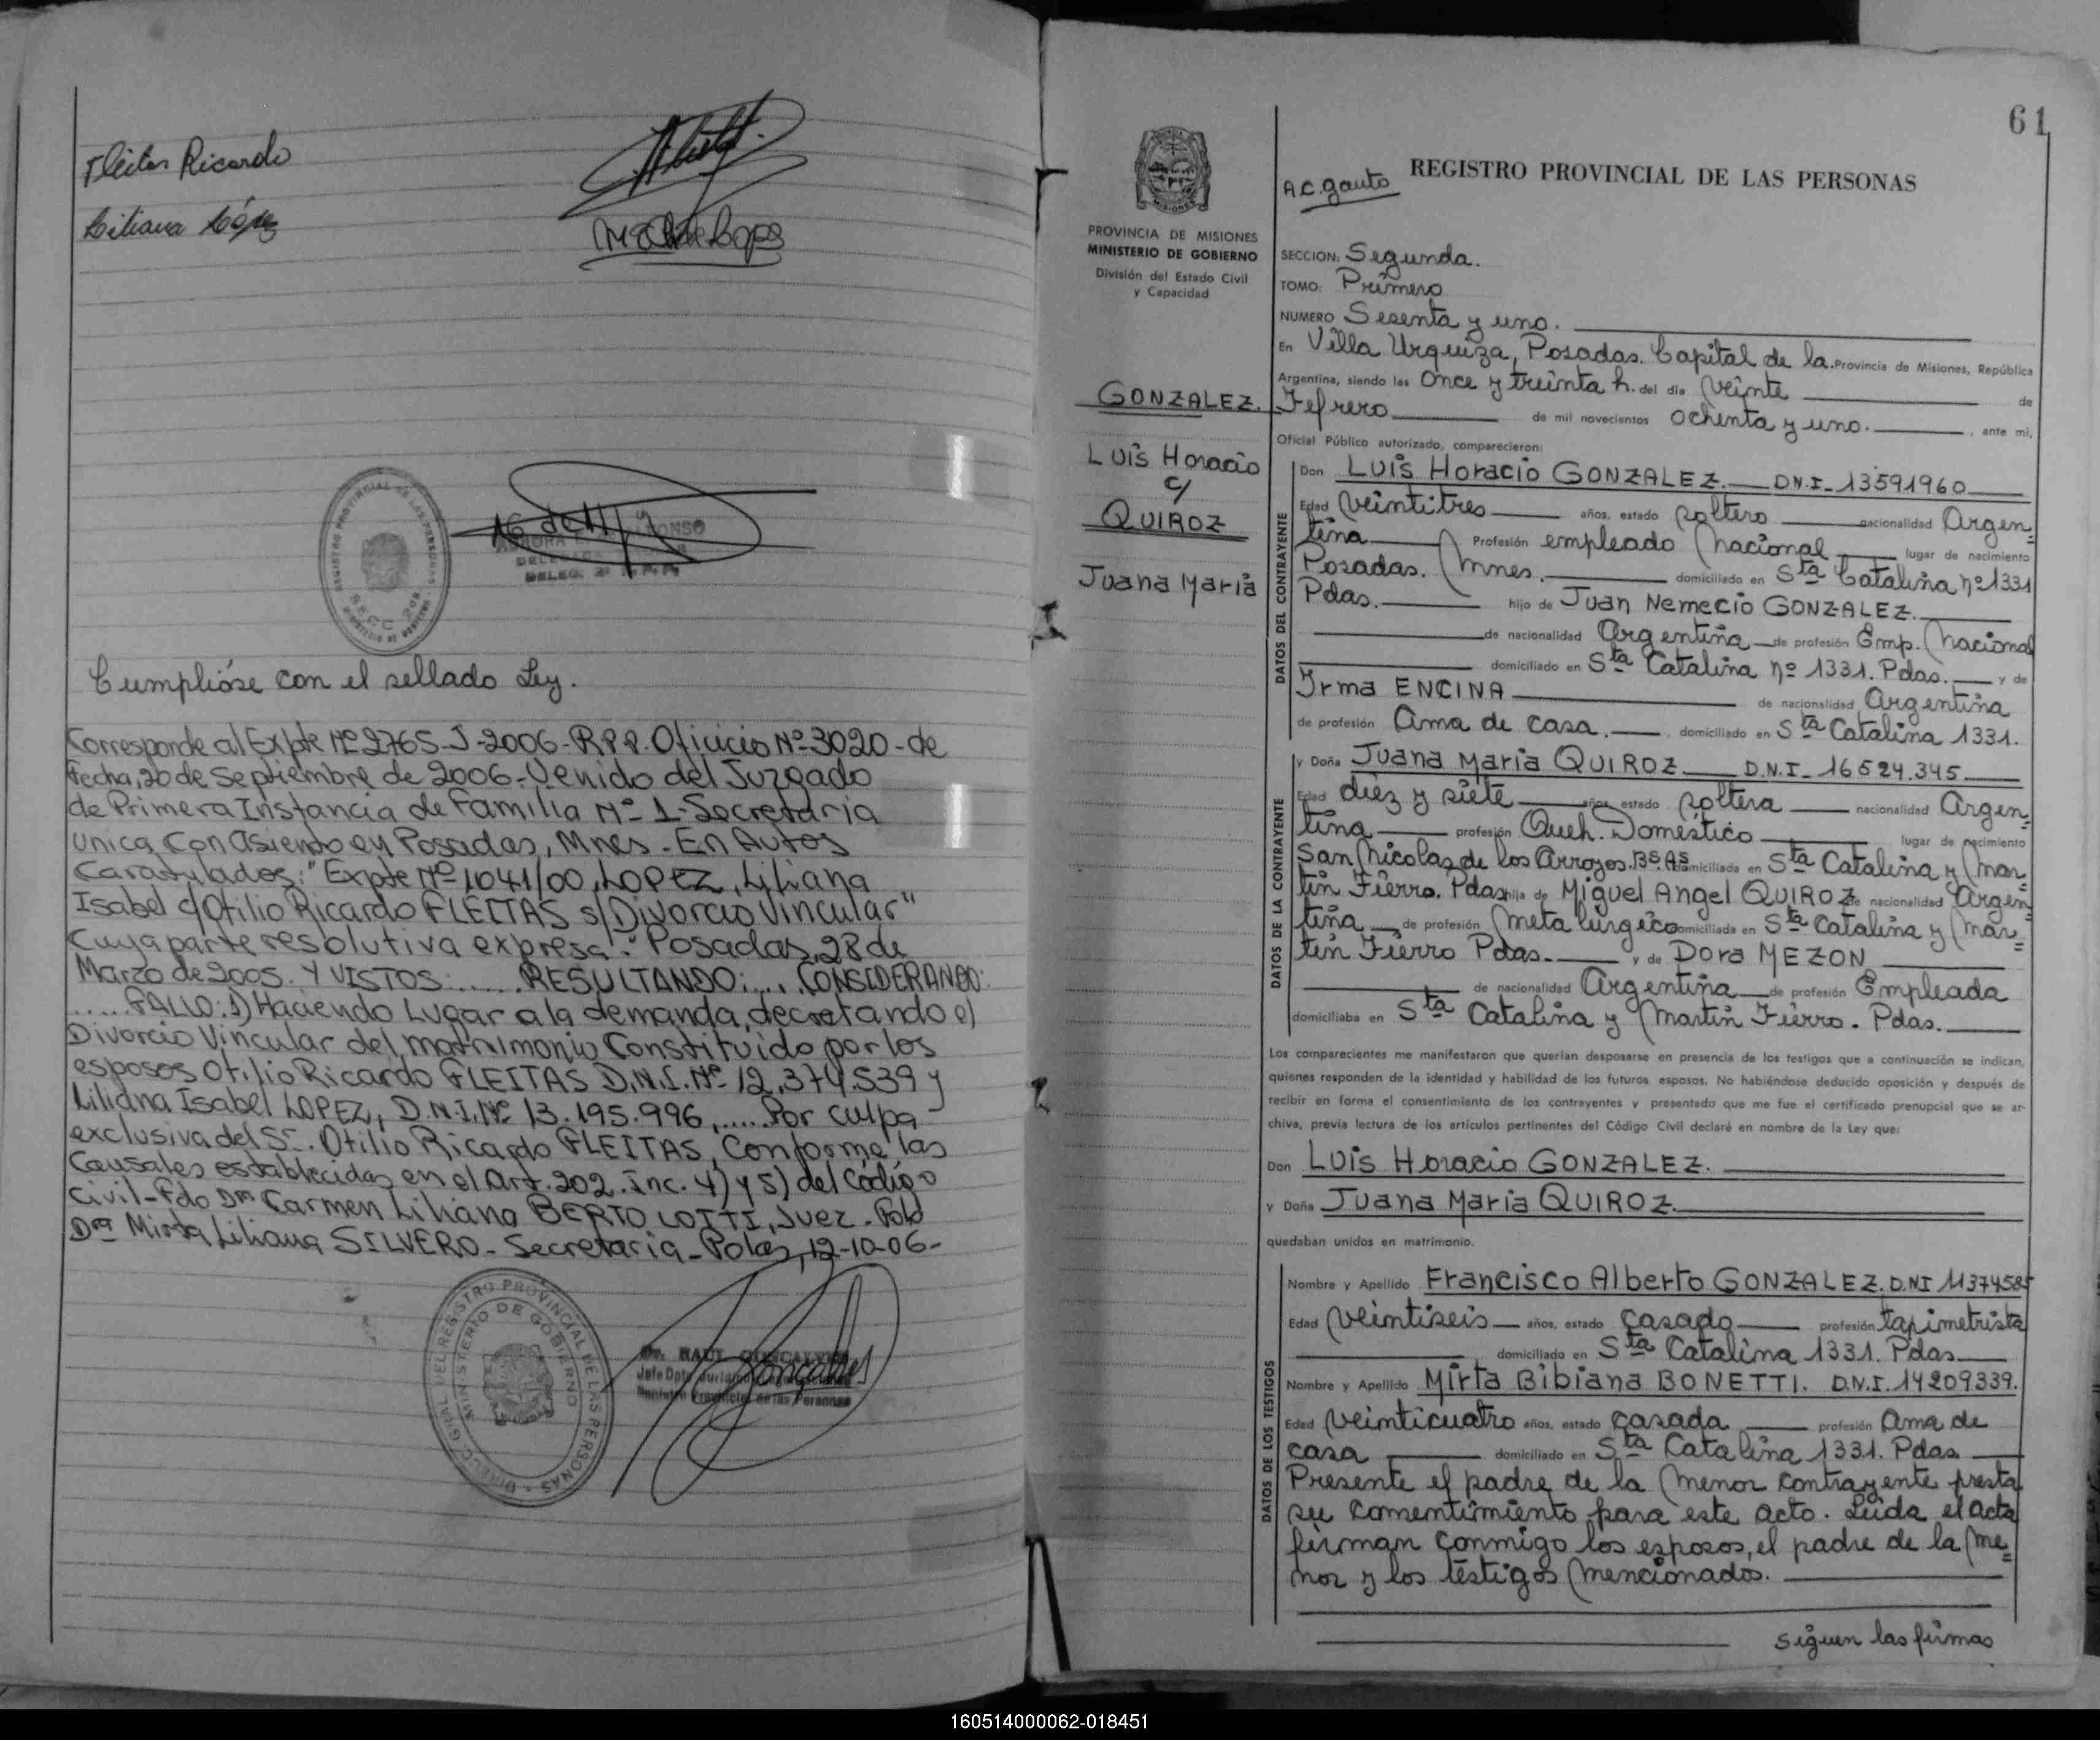 Fleitas Ricardo
Liliana López
Cumplióse con el sellado Ley.
Corresponde al Expte Nº 2765-J-2006-R.P.P. Oficicio Nº 3020- de
fecha, 20 de Septiembre de 2006-Venido del Juzgado
de Primera Instancia de Familia Nº 1-Secretaria
Unica Con Asiento en Posadas, Mnes - En Autos
Caratulados: "Expte Nº 1041/00, LOPEZ, Liliana
Isabel c/Otilio Ricardo FLEITAS s/Divorcio Vincular"
Cuya parte resolutiva expresa: "Posadas, 28 de
Marzo de 2005. Y VISTOS:..... RESULTANDO:.... CONSIDERANDO:
..... FALLO: 1) Haciendo Lugar a la demanda, decretando el
Divorcio Vincular del matrimonio Constituido por los
esposos Otilio Ricardo FLEITAS D.N.I. Nº 12.374.539 y
Liliana Isabel LOPEZ, D.N.I. Nº 13.195.996,..... Por culpa
exclusiva del Sr. Otilio Ricardo FLEITAS, Conforme las
Causales establecidas en el Art. 202. inc. 4) y 5) del Código
Civil-Fdo Dra Carmen Liliana BERTOLOTTI, Juez -
Dra Mirta Liliana SILVERO - Secretaria - 12-10-06-
DIRECC. GRAL. DEL REGISTRO PROVINCIAL DE LAS PERSONAS
MINISTERIO DE GOBIERNO
Dr. RAUL GONCALVES
Registro Provincial de las Personas
61
PROVINCIA DE MISIONES
MINISTERIO DE GOBIERNO
División del Estado Civil
y Capacidad
GONZALEZ.
Luis Horacio
c/
QUIROZ
Juana Maria
A.C. gauto
REGISTRO PROVINCIAL DE LAS PERSONAS
SECCION: Segunda.
TOMO: Primero
NUMERO Sesenta y uno.
En Villa Urquiza, Posadas. Capital de la. Provincia de Misiones, República
Argentina, siendo las Once y treinta h. del día Veinte de
Febrero de mil novecientos ochenta y uno. , ante mi,
Oficial Público autorizado, comparecieron:
DATOS DEL CONTRAYENTE
Don Luis Horacio GONZALEZ. D.N.I. 13591960
Edad Veintitres años, estado soltero nacionalidad Argen=
tina Profesión empleado Nacional lugar de nacimiento
Posadas. Mnes. domiciliado en Sta Catalina nº 1331
Pdas. hijo de Juan Nemecio GONZALEZ.
de nacionalidad Argentina de profesión Emp. Nacional
domiciliado en Sta Catalina nº 1331. Pdas. y de
Irma ENCINA de nacionalidad Argentina
de profesión Ama de casa. , domiciliado en Sta Catalina 1331.
DATOS DE LA CONTRAYENTE
y Doña Juana Maria QUIROZ D.N.I. 16524.345
Edad diez y siete años, estado soltera nacionalidad Argen=
tina profesión Queh. Doméstico lugar de nacimiento
San Nicolas de los Arroyos. Bs.As domiciliada en Sta Catalina y Mar=
tín Fierro. Pdas hija de Miguel Angel QUIROZ de nacionalidad Argen=
tina de profesión Metalúrgico domiciliado en Sta Catalina y Mar=
tín Fierro Pdas. y de Dora MEZON
de nacionalidad Argentina de profesión Empleada
domiciliaba en Sta Catalina y Martín Fierro. Pdas.
Los comparecientes me manifestaron que querían desposarse en presencia de los testigos que a continuación se indican,
quienes responden de la identidad y habilidad de los futuros esposos. No habiéndose deducido oposición y después de
recibir en forma el consentimiento de los contrayentes y presentado que me fue el certificado prenupcial que se ar-
chiva, previa lectura de los artículos pertinentes del Código Civil declaré en nombre de la Ley que:
Don Luis Horacio GONZALEZ.
y Doña Juana Maria QUIROZ.
quedaban unidos en matrimonio.
DATOS DE LOS TESTIGOS
Nombre y Apellido Francisco Alberto GONZALEZ. D.NI 11374585
Edad Veintiseis años, estado casado profesión tapimetrista
domiciliado en Sta Catalina 1331. Pdas
Nombre y Apellido Mirta Bibiana BONETTI. D.N.I. 14209339.
Edad Veinticuatro años, estado casada profesión Ama de
casa domiciliado en Sta Catalina 1331. Pdas
Presente el padre de la Menor contrayente presta
su consentimiento para este acto. Leida el acta
firman conmigo los esposos, el padre de la Me=
nor y los testigos Mencionados.
siguen las firmas
160514000062-018451